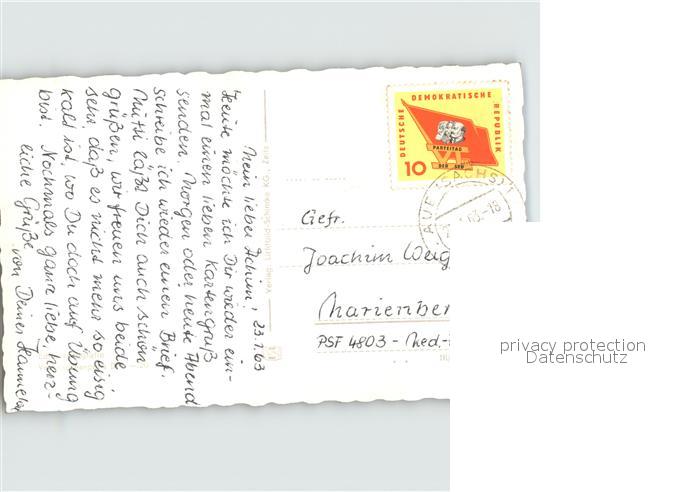 Mein lieber Achim, 23.1.63
Heute möchte ich Dir wieder ein-
mal einen lieben Kartengruß
senden. Morgen oder heute Abend
schreibe ich wieder einen Brief.
Mutti läßt Dich auch schön
grüßen, wir freuen uns beide
sehr, daß es nicht mehr so eisig
kalt ist, wo Du doch auf Übung
bist. Nochmals ganz liebe, herz-
liche Grüße von Deiner
DEUTSCHE DEMOKRATISCHE REPUBLIK
PARTEITAG
VI
DER SED
10
AUE (SACHS)
63-18
Gefr.
Joachim
Marienber
PSF 4803 - Med.-
privacy protection
Datenschutz